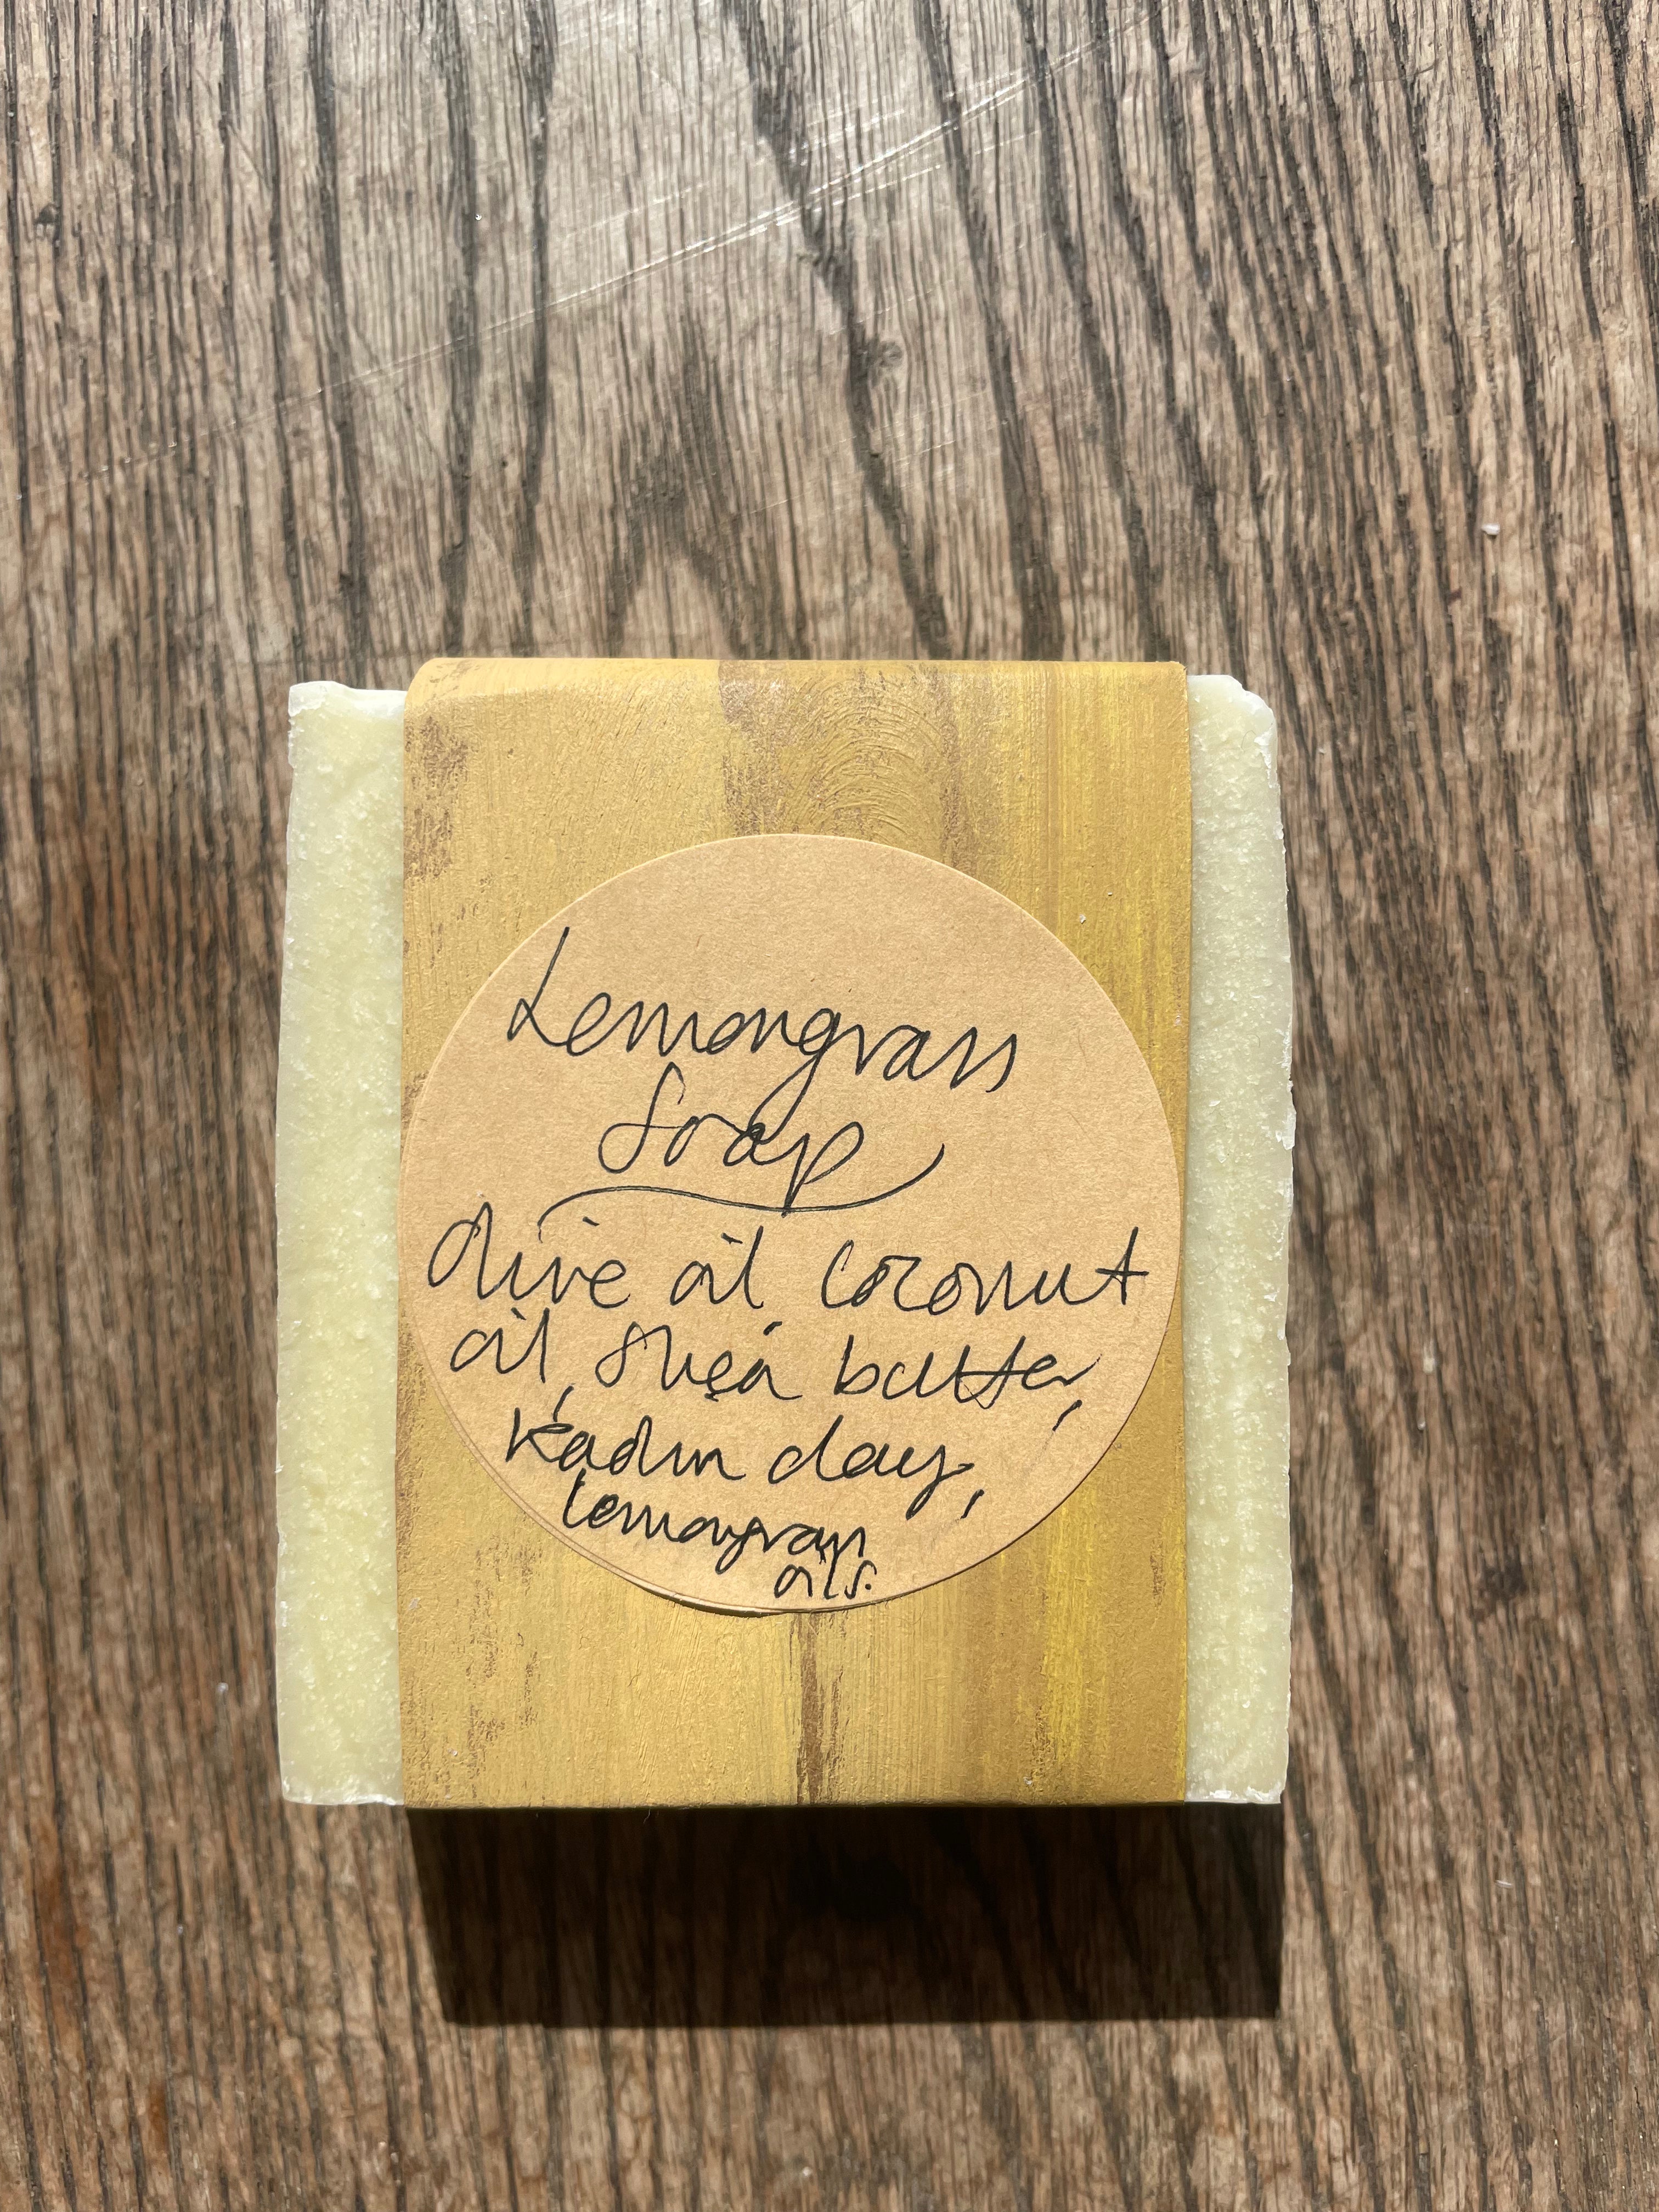 Lemongrass
Soap
Olive oil, coconut
oil, Shea butter,
Kaolin clay,
lemongrass
oils.